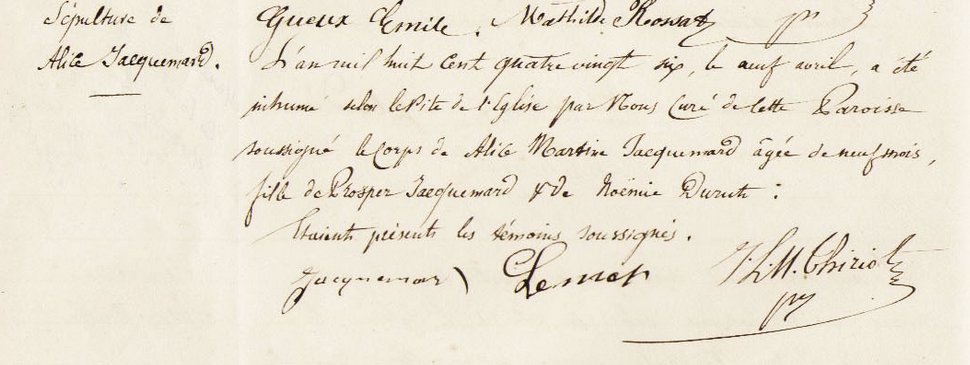 Sépulture de
Alice Jacquemard.
Gueux Emile. Mathilde
L'an mil huit cent quatre vingt six, le neuf avril, a été
inhumé selon le Rite de l'Eglise par Nous Curé de cette Paroisse
soussigné le Corps de Alice Martine Jacquemard âgée de neuf mois,
fille de Prosper Jacquemard & de Noëmie Durut :
Etaient présents les témoins soussignés.
Jacquemard Lemop J. L. H. Thiriot